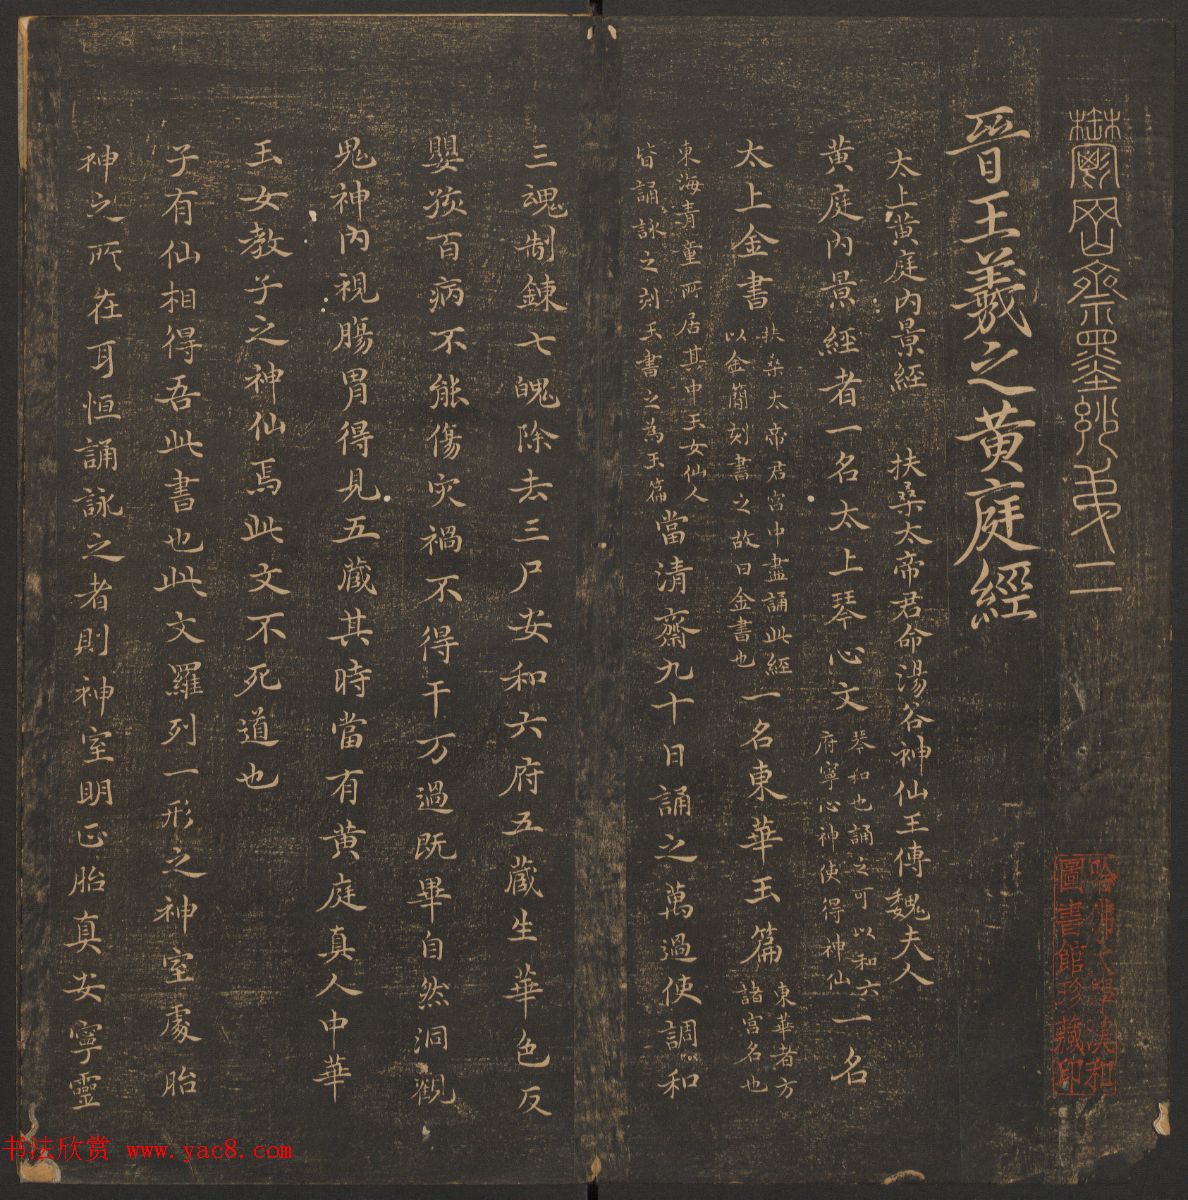 鬱岡齋墨玅弟二
晉王羲之黃庭經
太上黃庭內景經 扶桑太帝君命湯谷神仙王傳魏夫人
黃庭內景經者一名太上琴心文 琴和也誦之可以和六府寧心神使得神仙 一名
太上金書 扶桑太帝君宮中盡誦此經以金簡刻書之故曰金書也 一名東華玉篇 東華者方諸宮名也
東海青童所居其中玉女仙人皆誦詠之刻玉書之為玉篇 當清齋九十日誦之萬過使調和
三魂制鍊七魄除去三尸安和六府五藏生華色反
嬰孩百病不能傷灾禍不得干万過既畢自然洞觀
鬼神內視腸胃得見五藏其時當有黃庭真人中華
玉女教子之神仙焉此文不死道也
子有仙相得吾此書也此文羅列一形之神室處胎
神之所在耳恒誦詠之者則神室明正胎真安寧靈
哈佛大學漢和圖書館珍藏印
书法欣赏 www.yac8.com